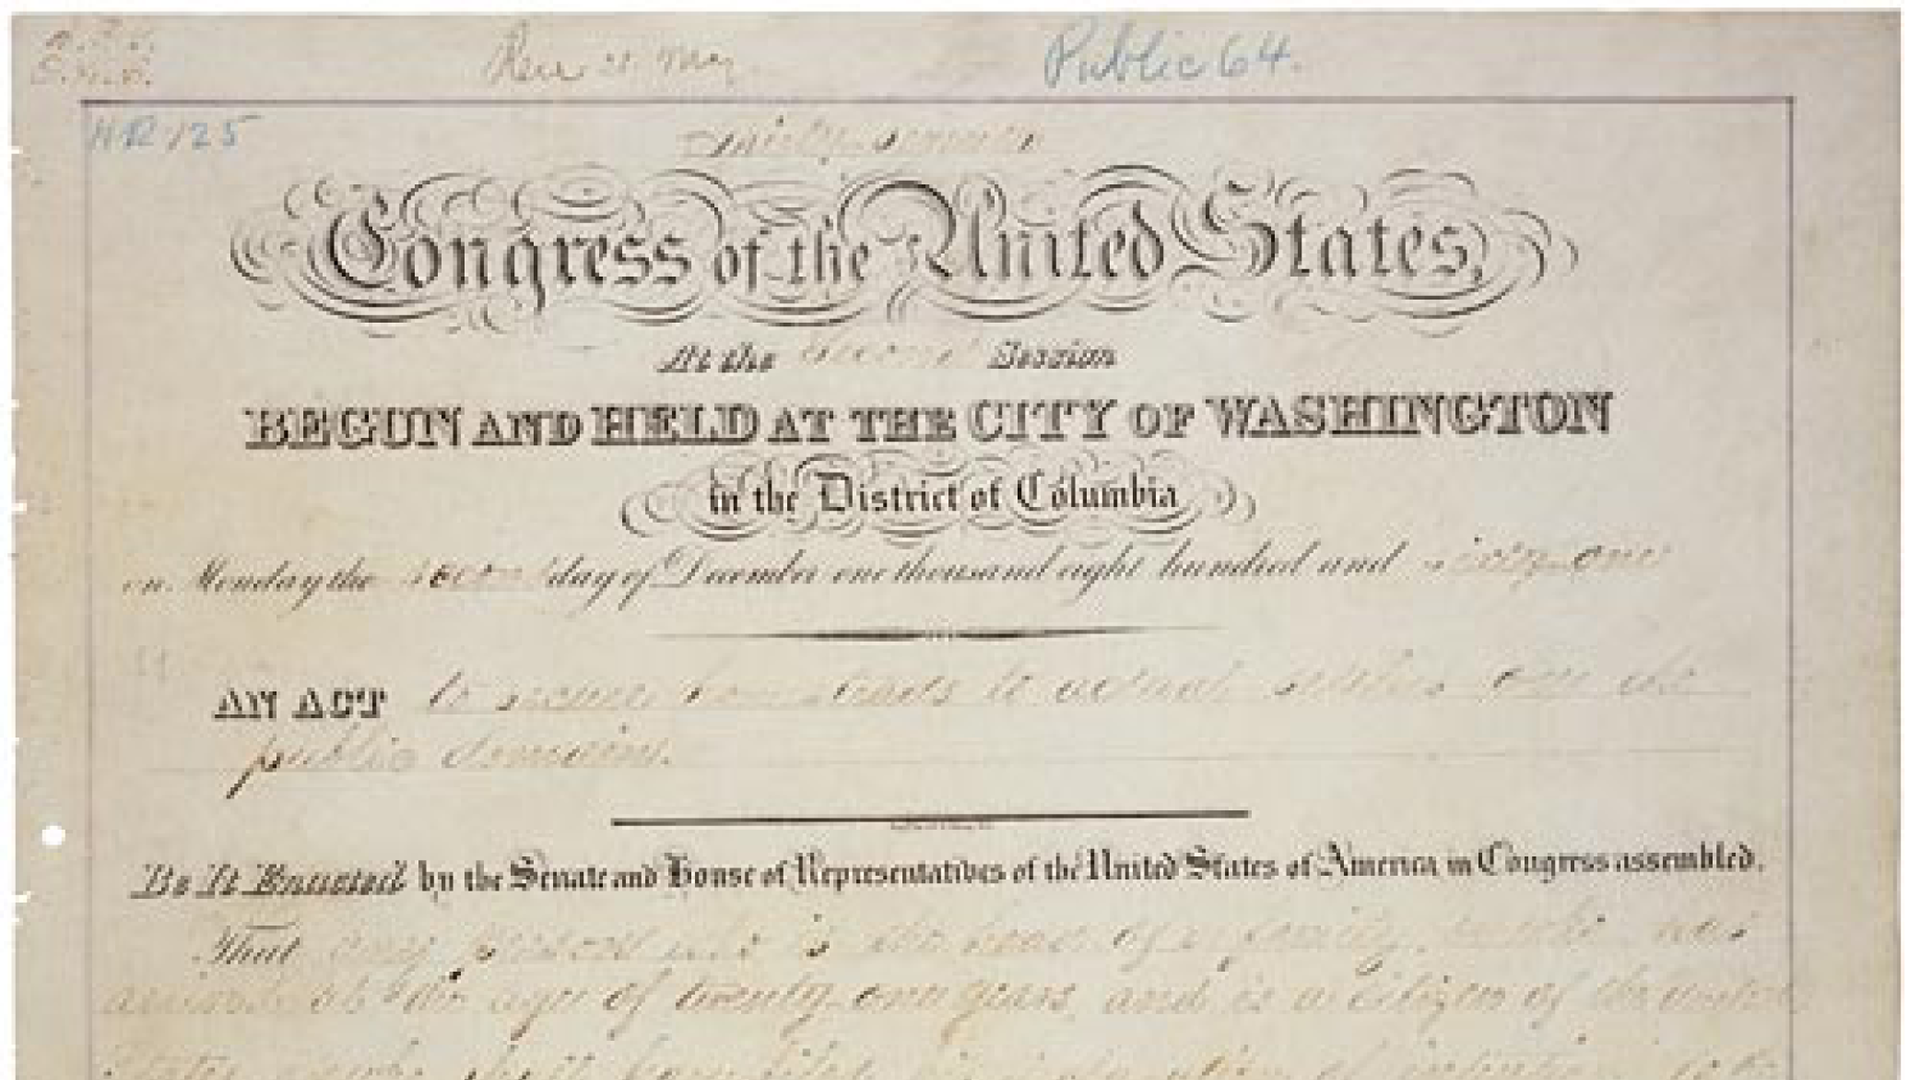 Public 64.
HR 125
Thirty-Seventh
Congress of the United States,
At the Second Session
BEGUN AND HELD AT THE CITY OF WASHINGTON
in the District of Columbia
on Monday the second day of December one thousand eight hundred and sixty-one
AN ACT to secure homesteads to actual settlers on the
public domain.
Be It Enacted by the Senate and House of Representatives of the United States of America in Congress assembled,
That any person who is the head of a family, or who has
arrived at the age of twenty-one years, and is a citizen of the United
States, or who shall have filed his declaration of intention to be